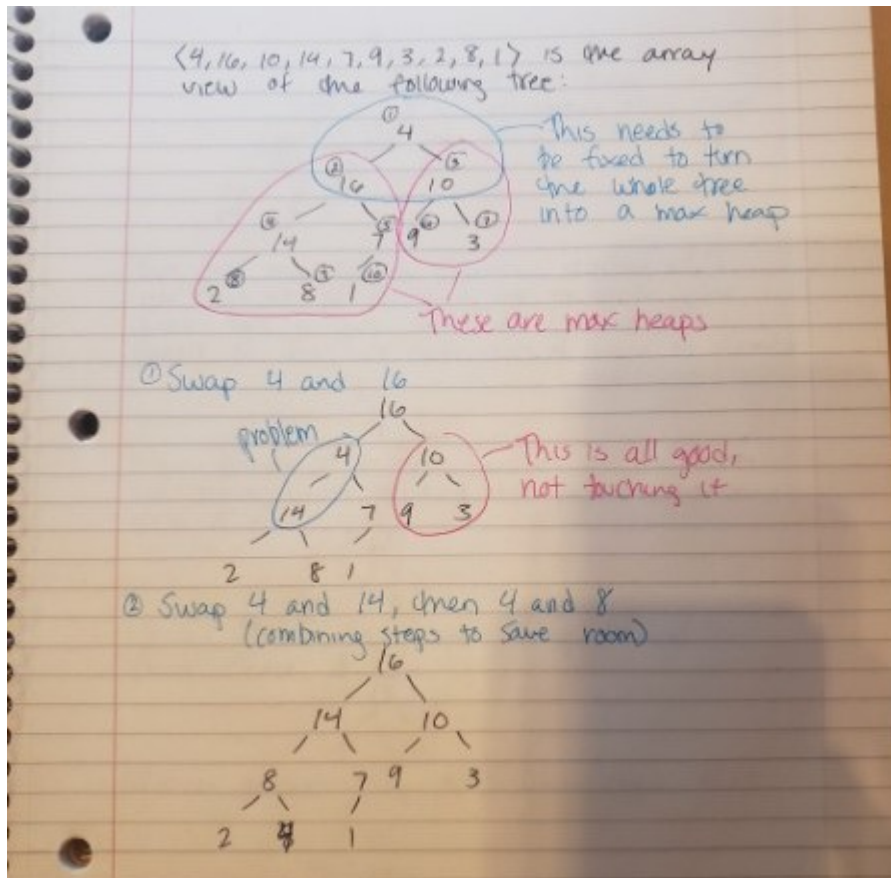 <4, 16, 10, 14, 7, 9, 3, 2, 8, 1> is the array
view of the following tree:
①
4
② ③
16 10
This needs to
be fixed to turn
the whole tree
into a max heap
④ ⑤ ⑥ ⑦
14 7 9 3
⑧ ⑨ ⑩
2 8 1
These are max heaps
① Swap 4 and 16
16
problem
4 10
This is all good,
not touching it
14 7 9 3
2 8 1
② Swap 4 and 14, then 4 and 8
(combining steps to save room)
16
14 10
8 7 9 3
2 4 1